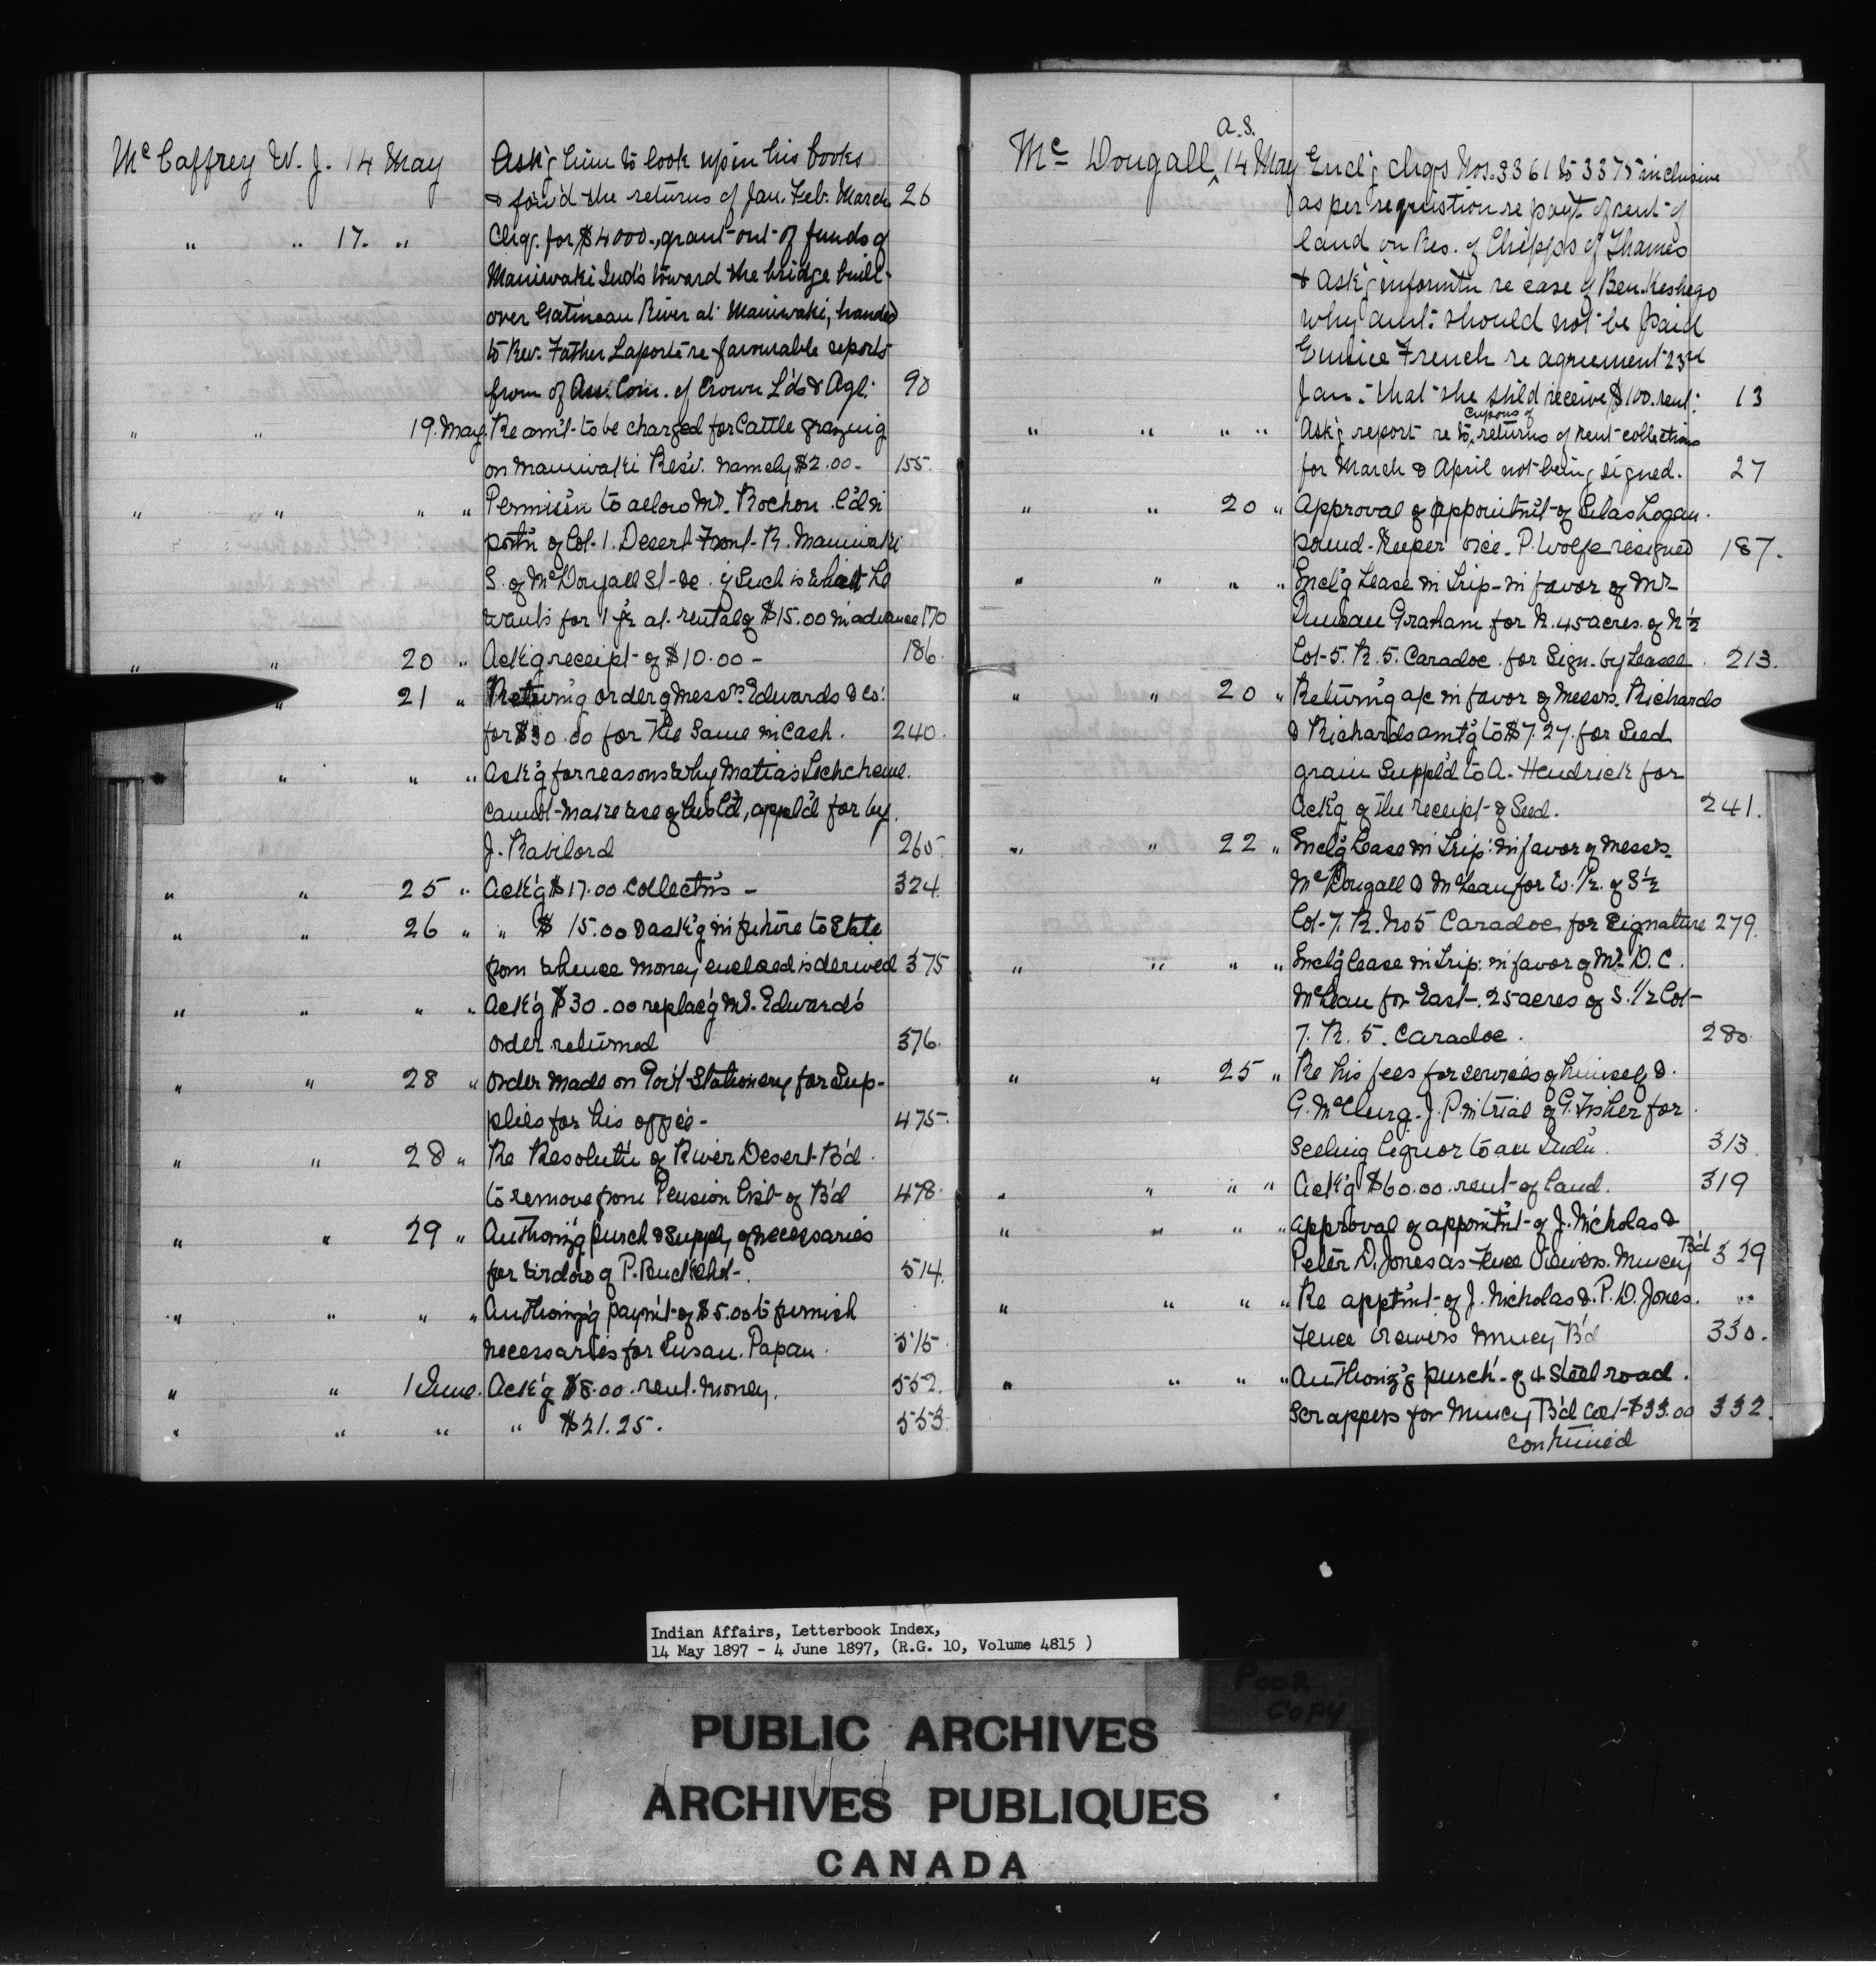 Mc Caffrey W. J. 14 May Ask'g him to look up in his books
& forw'd the returns of Jan. Feb. March 26
" " 17. " Chq. for $4000., grant out of funds of
Maniwaki Ind's toward the bridge built
over Gatineau River at Maniwaki, handed
to Rev. Father Laporte re favourable reports
from of Ass. Com. of Crown L'ds & Agt. 90
" " 19. May. Re am't to be charged for Cattle grazing
on Maniwaki Resv. namely $2.00- 155.
" " " " Permis'n to allow Mr. Rochon
port'n of Lot 1. Desert Front R. Maniwaki
S. of McDougall St- &c. if Such is what he
wants for 1 yr at rental of $15.00 in advance 170
" " 20 " Ack'g receipt of $10.00 - 186.
" 21 " Return'g order of Messrs. Edwards & Co.
for $30.00 for the Same in Cash. 240.
" " " Ask'g for reasons why Matias
cannot make use of his l'd, appl'd for by
J. Rabilord 260
" " 25 " Ack'g $17.00 Collect'ns - 324.
" " 26 " " $ 15.00 & ask'g in future to State
from whence money enclosed is derived 375
" " " " Ack'g $30.00 replac'g Mr. Edward's
order returned 376.
" " 28 " Order made on Gov't Stationery for Sup-
plies for his office - 475.
" " 28 " Re Resolut'n of River Desert B'd.
to remove from Pension list of B'd 478.
" " 29 " Authoriz'g purch & Supply of necessaries
for widow of P. 514.
" " " " Authoriz'g paym't of $5.00 to furnish
necessaries for Susan. Papan. 515.
" " 1 June. Ack'g $8.00 rent. money. 552.
" " " " $21.25. 553.
Mc Dougall, 14 May Encl'g chqs Nos. 3361 to 3375 inclusive
a.S.
as per requistion re pay't of rent of
land on Res. of Chipp's of Thames
& Ask'g informt'n re case of Ben. Keshego
why amt. should not be paid
Eunice French re agreement 23rd
Jan. that she sh'ld receive $100. rent. 13
" " " " Ask'g report re to returns of Rent collections
for March & April not being signed. 27
" " 20 " Approval of appointm't of Silas Logan.
pound-Keeper vice. P. Wolfe resigned 187.
" " " " Encl'g Lease in Trip- in favor of Mr-
Duncan Graham for N. 45 acres of N ½
Lot-5. R. 5. Caradoc. for Sign. by Leasee. 213.
" " 20 " Return'g a/c in favor of Messrs. Richards
& Richards amt'g to $7.27. for Seed
grain Suppl'd to A. Hendrick for
Ack'g of the receipt of Seed. 241.
" " 22 " Encl'g Lease in Trip: in favor of Messrs.
McDougall & McLean for W. Pt. of S ½
Lot-7. R. No 5 Caradoc, for Signature 279.
" " " " Encl'g lease in Trip: in favor of Mr. D. C.
McLean for East-. 25 acres of S. 1/2 Lot-
7. R. 5. Caradoc. 280.
" " 25 " Re his fees for services of himself &.
G. McClurg. J. P. in trial of G. Fisher for.
Selling liquor to an Indn. 313.
" " " " Ack'g $60.00. rent of land. 319
" " " " Approval of appointm't of J. Nicholas &
Peter D. Jones as Fence Viewers. Muncey B'd 329
" " " " Re apptm't of J. Nicholas &. P. D. Jones. "
Fence Viewers Muncey B'd 330.
" " " " Authoriz'g purch. of 4 Steel road.
Scrappers for Muncey B'd Cost $33.00 332.
continued
Indian Affairs, Letterbook Index,
14 May 1897 - 4 June 1897, (R.G. 10, Volume 4815 )
POOR
COPY
PUBLIC ARCHIVES
ARCHIVES PUBLIQUES
CANADA